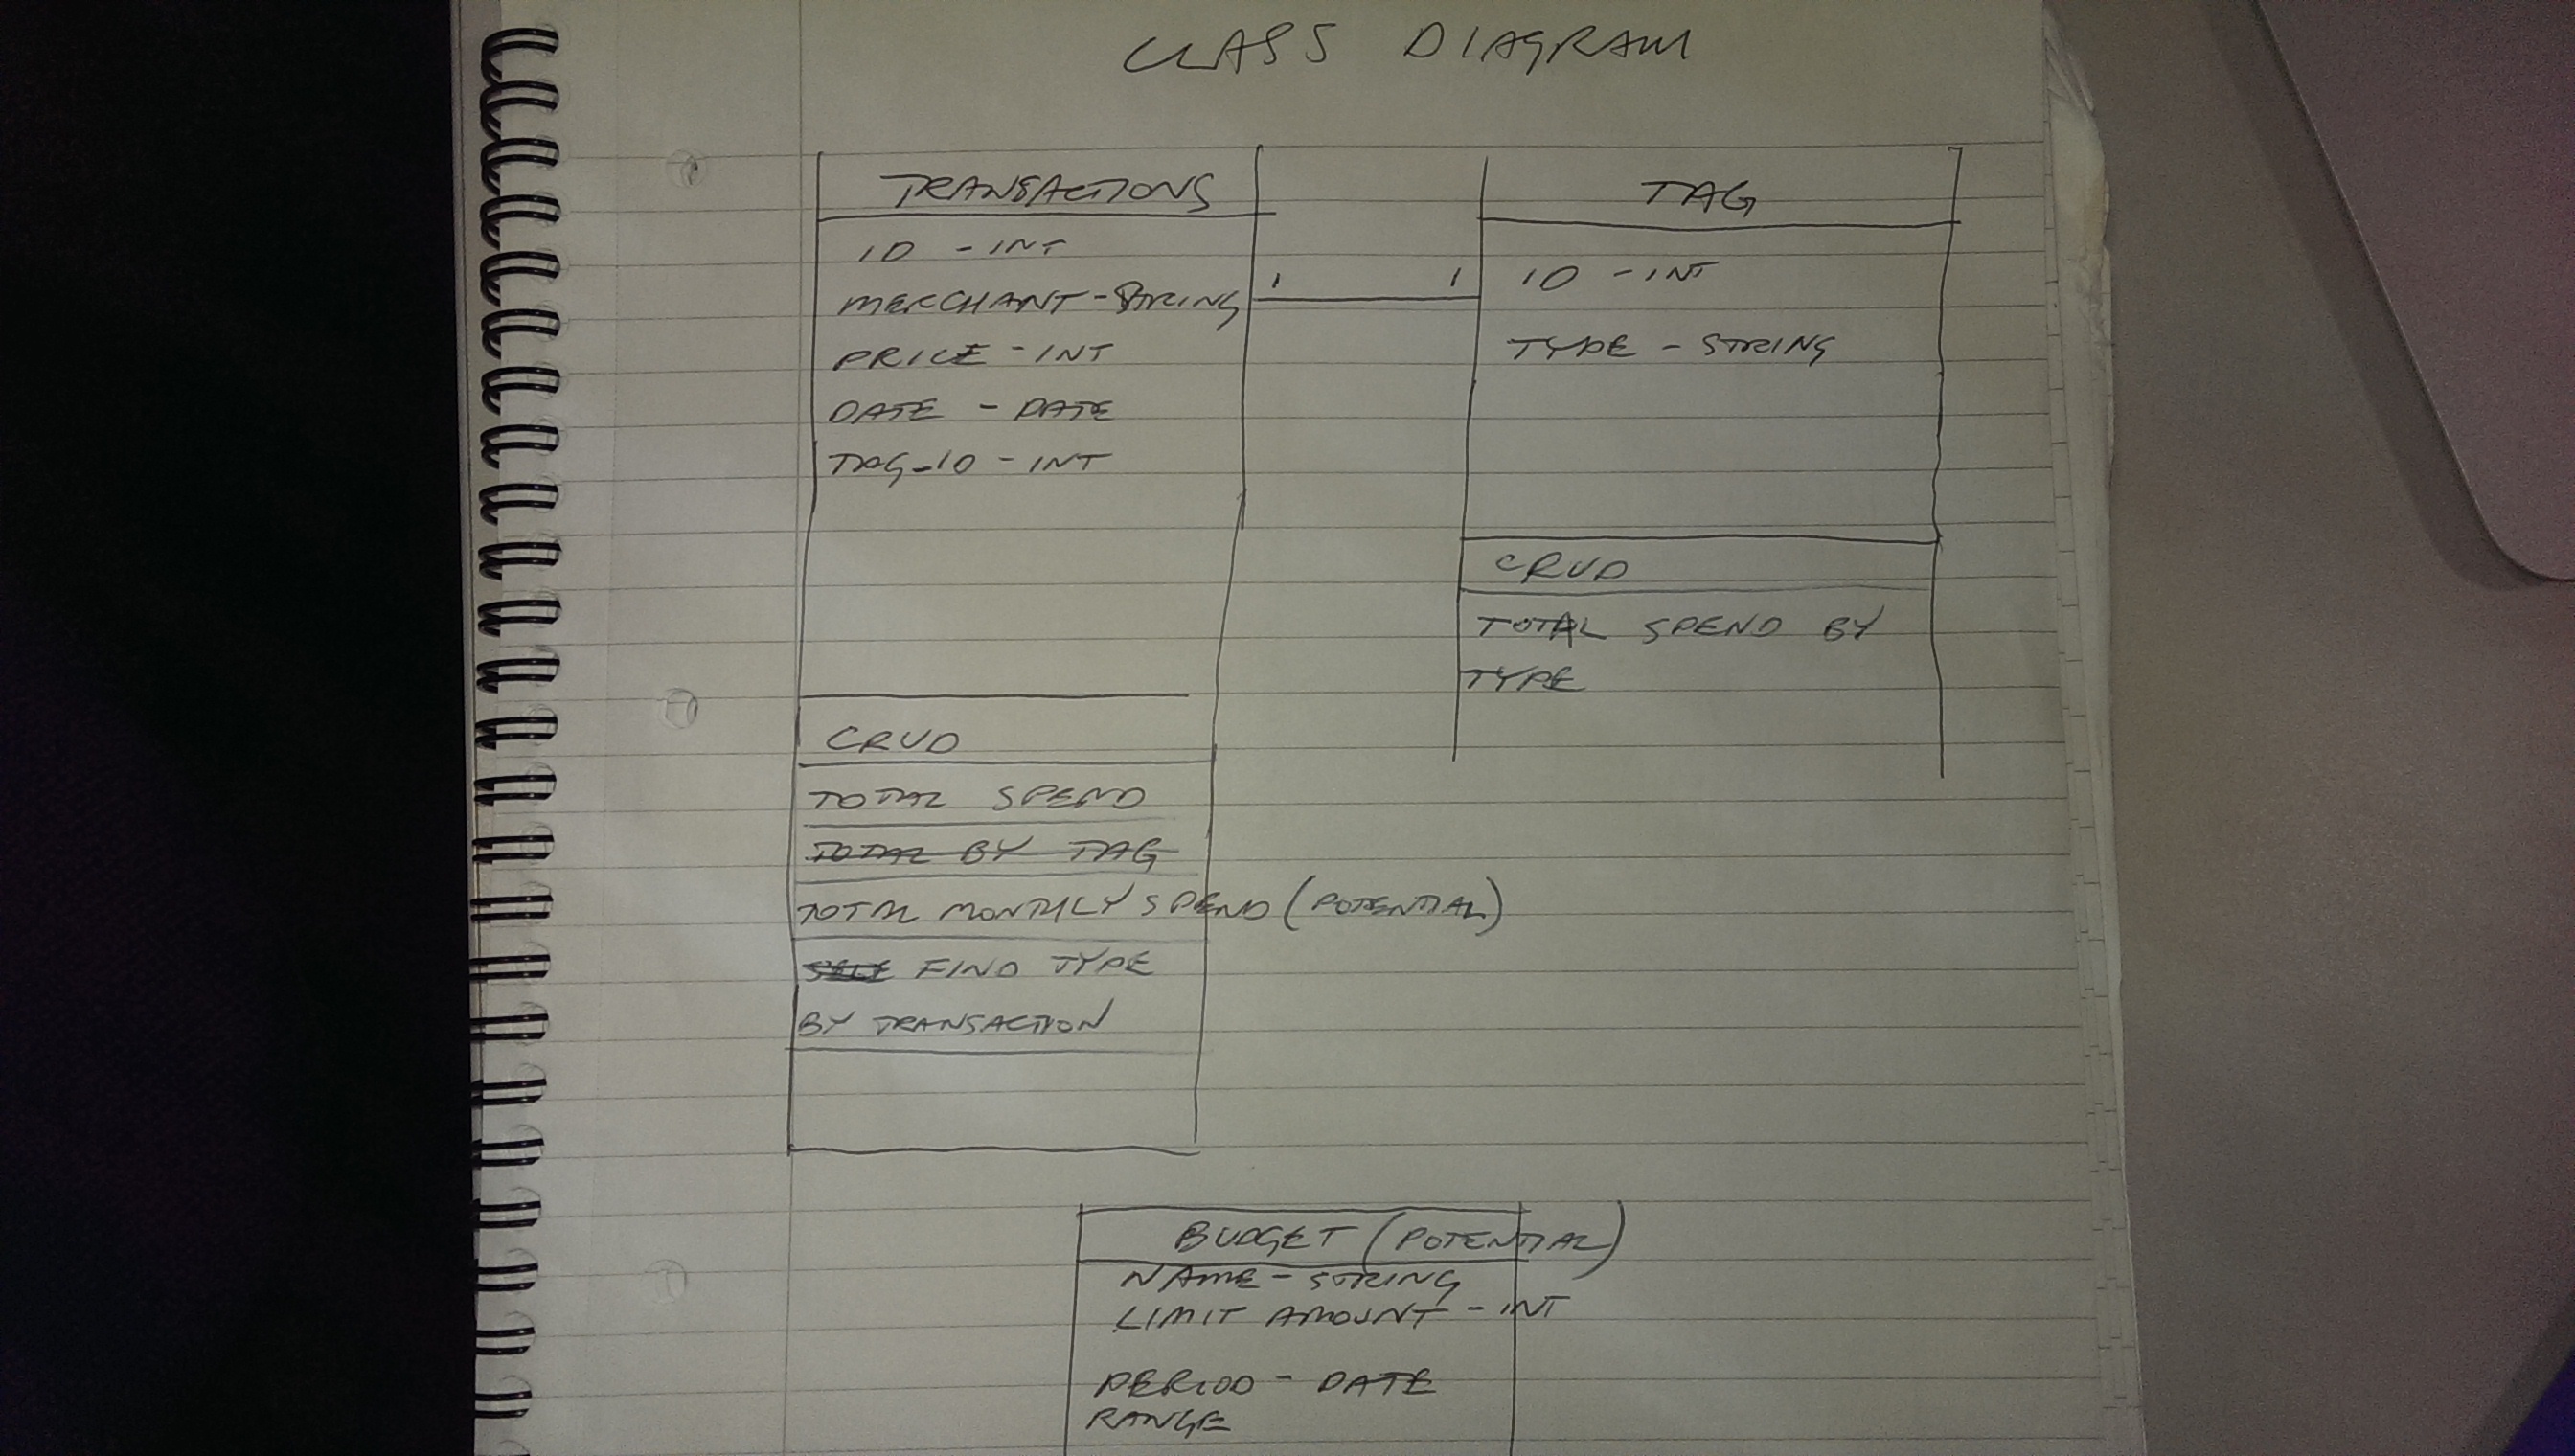 CLASS DIAGRAM
TRANSACTIONS
ID - INT
MERCHANT - STRING
PRICE - INT
DATE - DATE
TAG_ID - INT
CRUD
TOTAL SPEND
TOTAL BY TAG
TOTAL MONTHLY SPEND (POTENTIAL)
FIND TYPE
BY TRANSACTION
1 1
TAG
ID - INT
TYPE - STRING
CRUD
TOTAL SPEND BY
TYPE
BUDGET (POTENTIAL)
NAME - STRING
LIMIT AMOUNT - INT
PERIOD - DATE
RANGE